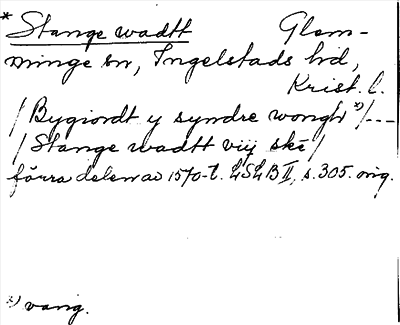 * Stange wadtt Glem-
minge sn, Ingelstads hd,
Krist. l.
/ Bygiordt y syndre wongh x)/---
/ Stange wadtt viij ske /
förra delen av 1570-t. LSLB II, s. 305. orig.
x) vang.